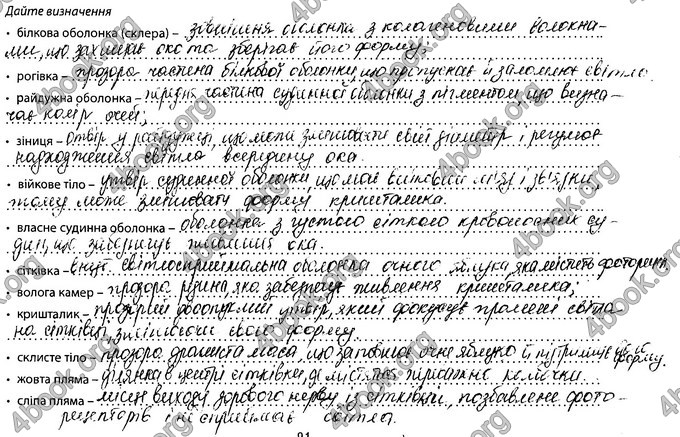 Дайте визначення
• білкова оболонка (склера) – зовнішня оболонка з колагеновими волокна-
ми, що захищає око та зберігає його форму.
• рогівка – прозора частина білкової оболонки, що пропускає й заломлює світло.
• райдужна оболонка – передня частина судинної оболонки з пігментом, що визна-
чає колір очей;
• зіниця – отвір у райдужці, що може змінювати свій діаметр і регулює
надходження світла всередину ока.
• війкове тіло – утвір судинної оболонки, що має війковий м'яз і зв'язки,
тому може змінювати форму кришталика.
• власне судинна оболонка – оболонка з густою сіткою кровоносних су-
дин, що забезпечує живлення ока.
• сітківка – внут. світлосприймальна оболонка очного яблука, яка містить фоторец.
• волога камер – прозора рідина, яка забезпечує живлення кришталика;
• кришталик – прозорий двоопуклий утвір, який фокусує промені світла
на сітківці, змінюючи свою форму.
• склисте тіло – прозора драглиста маса, що заповнює очне яблуко й підтримує його форму.
• жовта пляма – ділянка в центрі сітківки, де містяться переважно колбочки.
• сліпа пляма – місце виходу зорового нерву із сітківки, позбавлене фото-
рецепторів і не сприймає світла.
4book.org